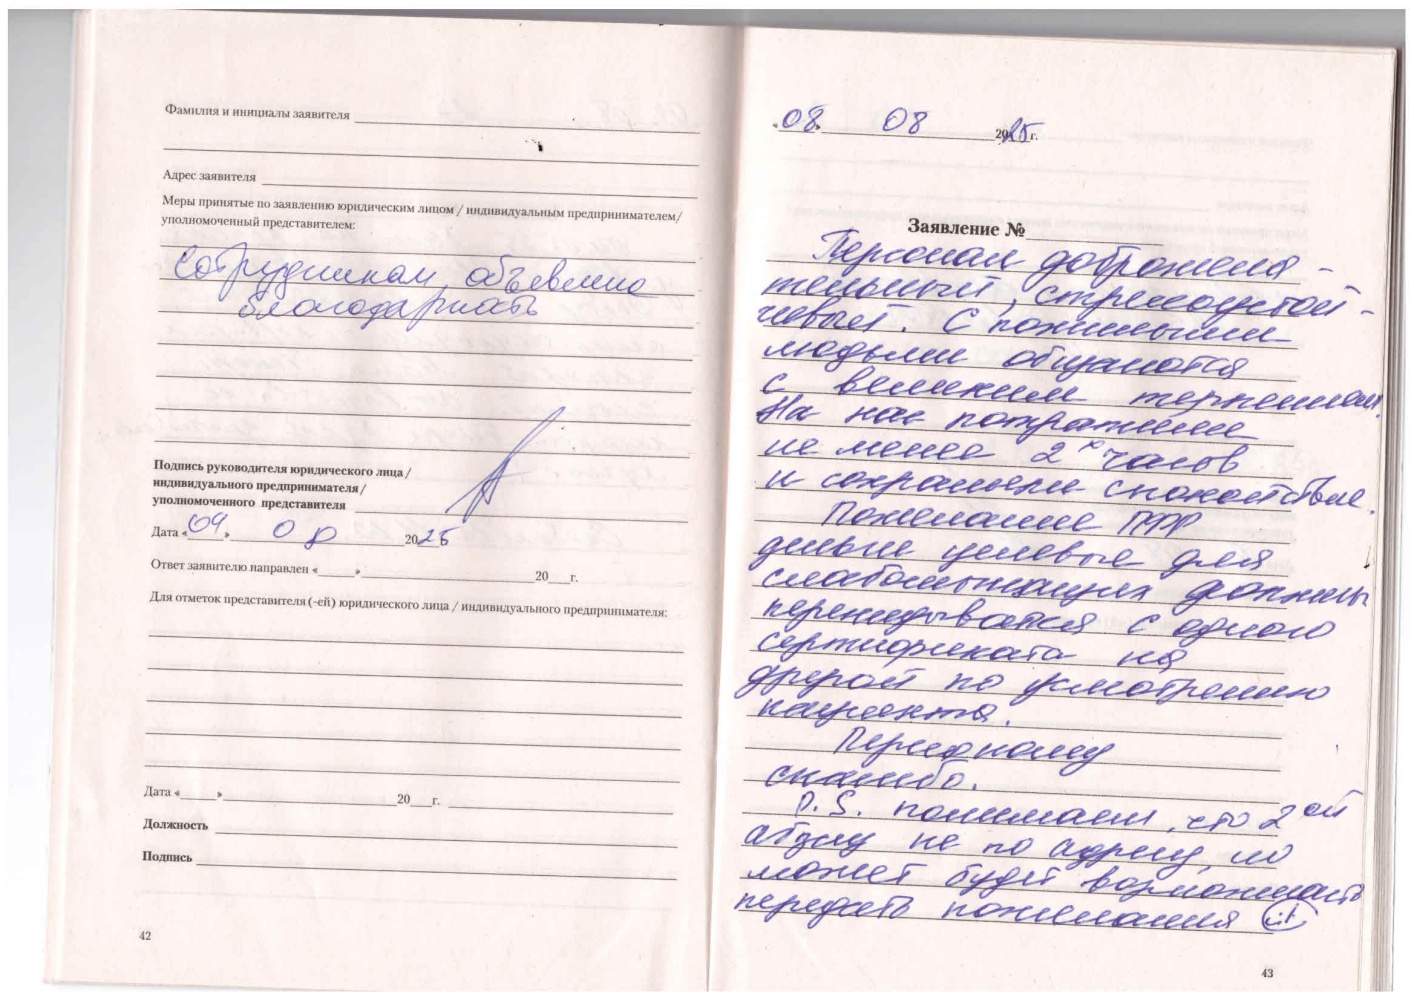 Фамилия и инициалы заявителя
Адрес заявителя
Меры принятые по заявлению юридическим лицом / индивидуальным предпринимателем/
уполномоченный представителем:
Сотрудникам объявлена
благодарность
Подпись руководителя юридического лица /
индивидуального предпринимателя /
уполномоченного представителя
Дата «09» 08 2025
Ответ заявителю направлен «____»____20__г.
Для отметок представителя (-ей) юридического лица / индивидуального предпринимателя:
Дата «____»____20__г.
Должность
Подпись
42
«08» 08 2025 г.
Заявление №
Персонал доброжела-
тельный, стрессоустой-
чивый. С пожилыми
людьми общаются
с великим терпением.
На нас потратили
не менее 2х часов
и сохранили спокойствие.
Пожелание ПФР
деньги целевые для
слабослышащих должны
перекидываться с одного
сертификата на
другой по усмотрению
пациента.
Персоналу
спасибо.
P.S. понимаем, что 2ой
абзац не по адресу, но
может будет возможность
передать пожелания
43